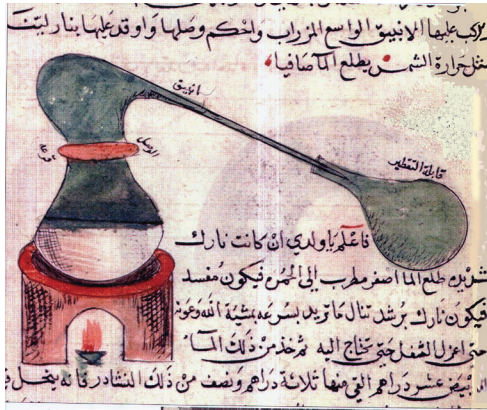 يركب عليها الانبيق الواسع المزراب واحكم وصلها واوقد عليها بنار لينة
مثل حرارة الشمس يطلع الما صافيا
انبيق
الوصل
قرعة
قابلة التقطير
فاعلم يا ولدي ان كانت نارك
شديده طلع الما اصفر مطرب الى الحمره فيكون مفسد
فيكون نارك برشد تنال ما تريد بسرعه بمشية الله وعونه
حتى اعزل الثفل حتى تحتاج اليه ثم خذ من ذلك الما
عشر دراهم القي منها ثلاثة دراهم ونصف من ذلك النشادر فانه ينحل